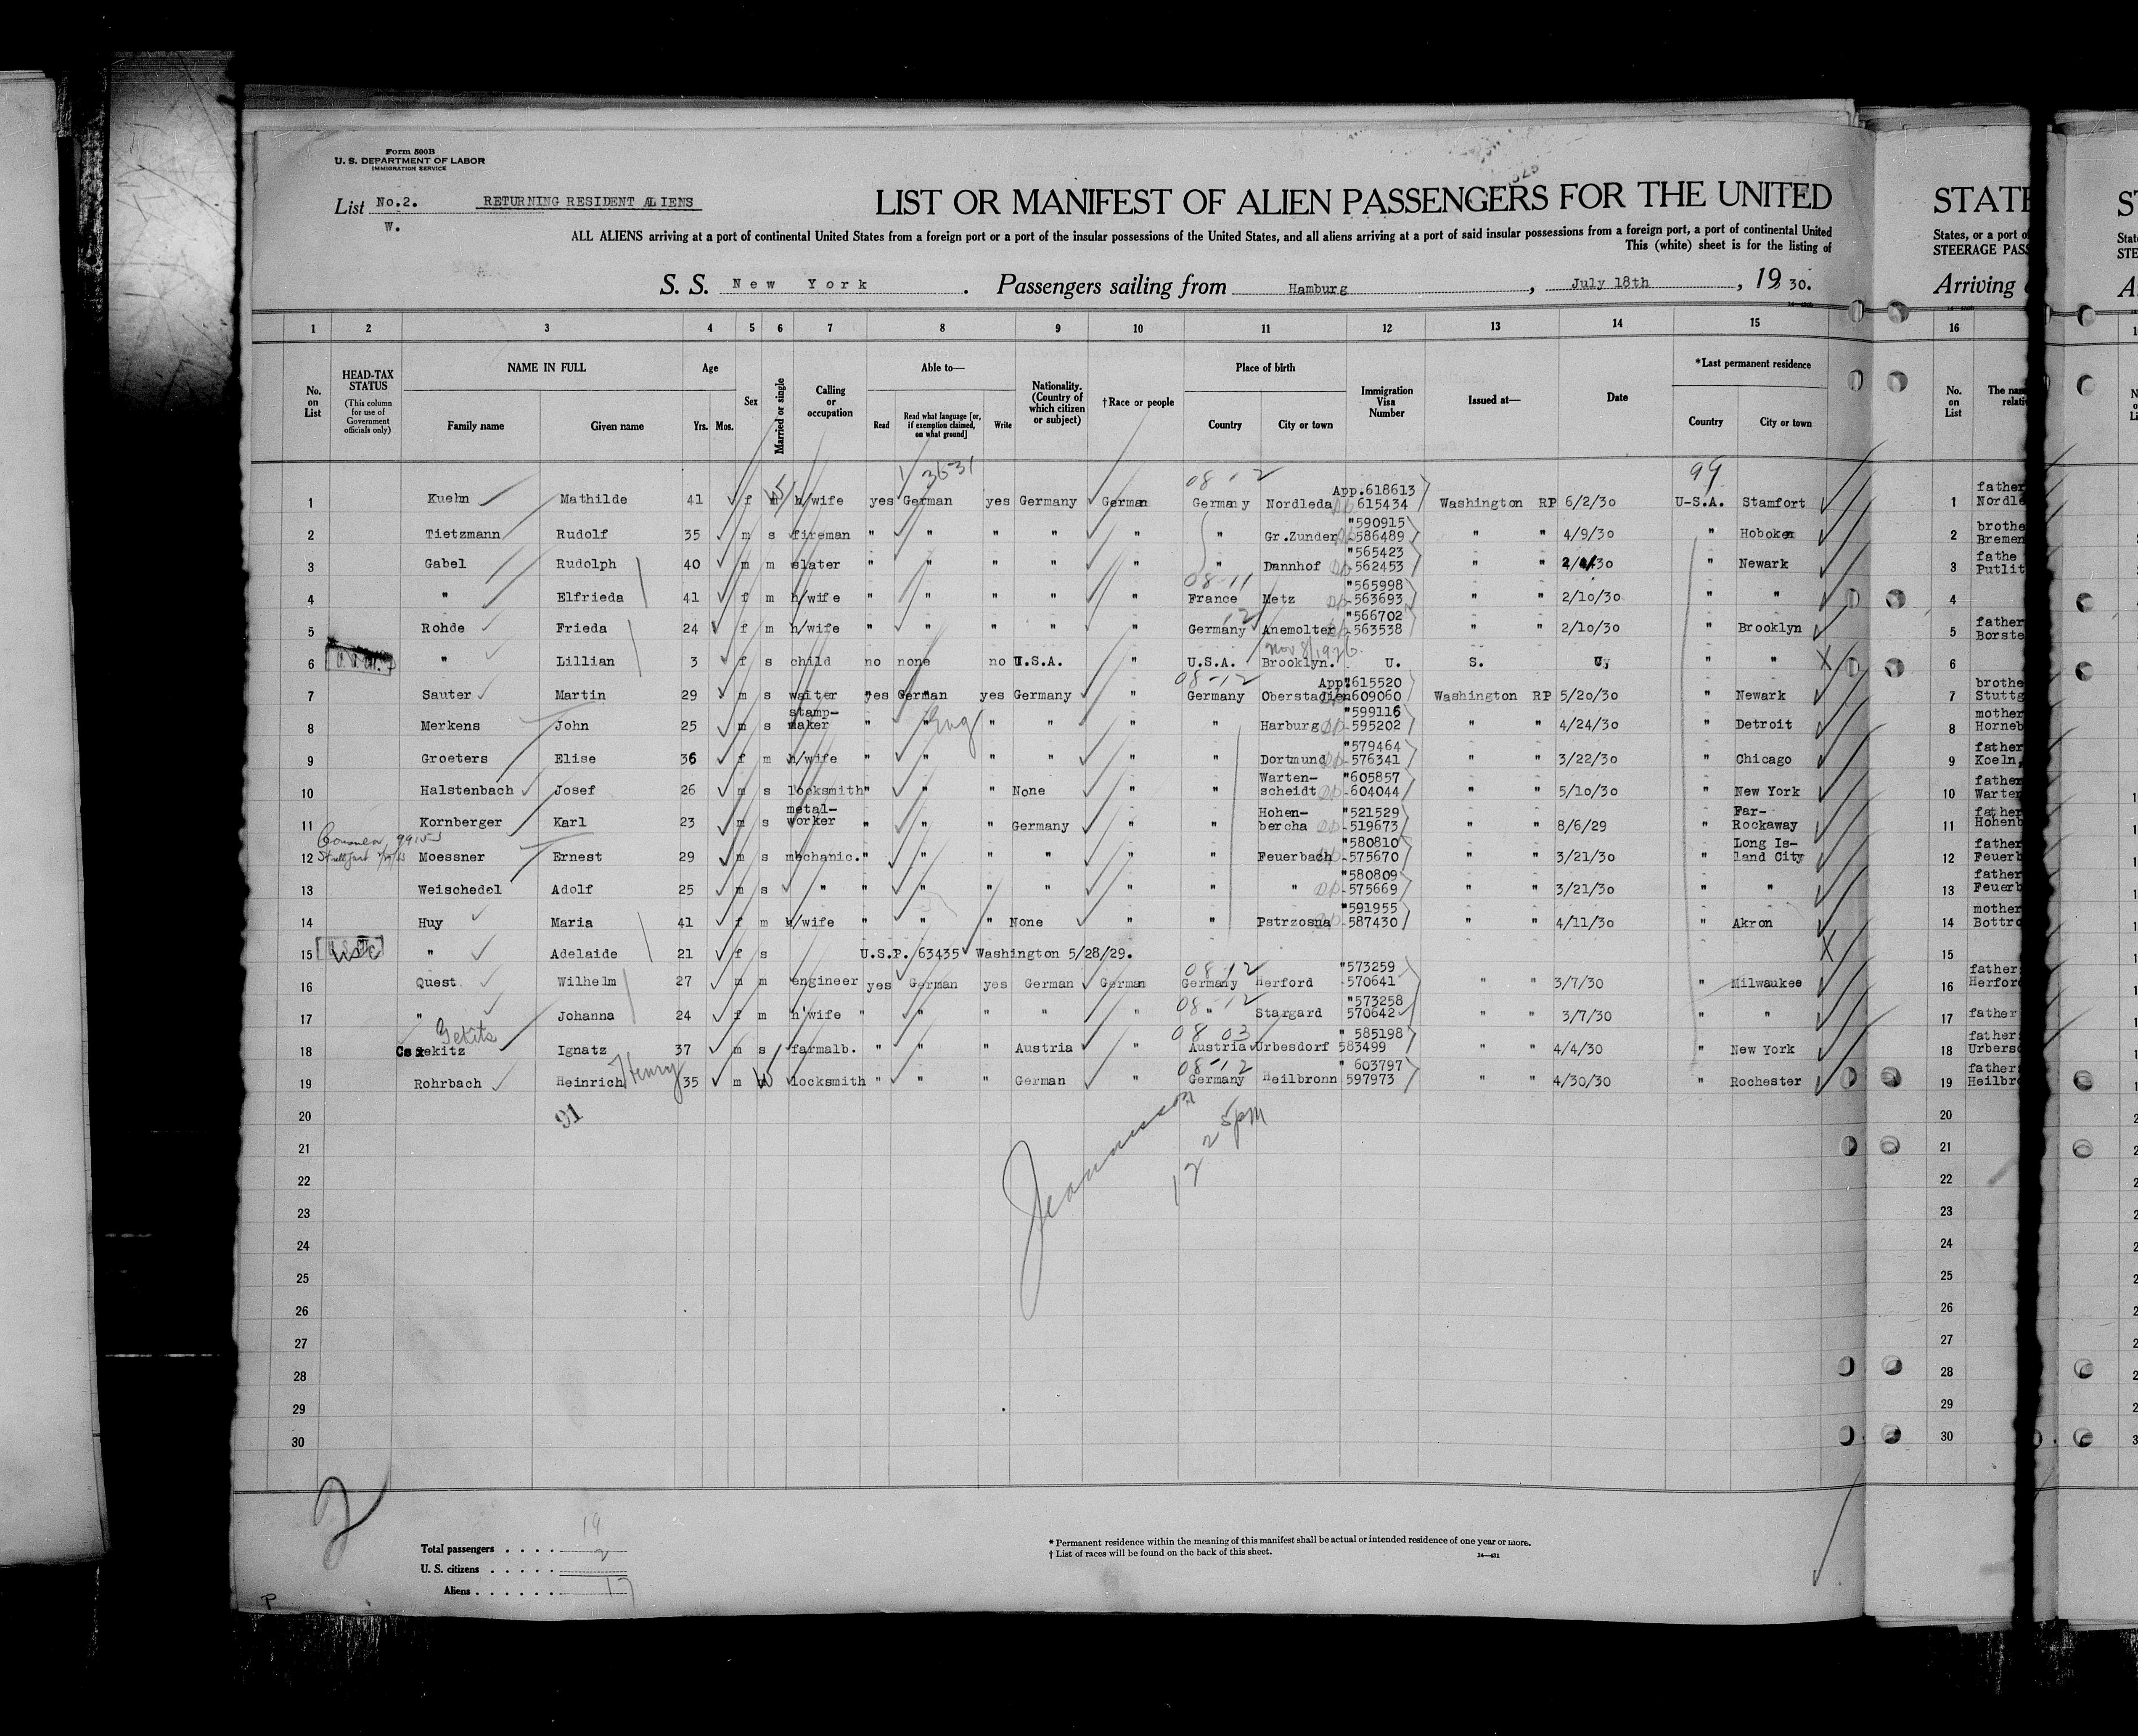 Form 500B
U. S. DEPARTMENT OF LABOR
IMMIGRATION SERVICE
List No.2. RETURNING RESIDENT ALIENS
W.
LIST OR MANIFEST OF ALIEN PASSENGERS FOR THE UNITED
ALL ALIENS arriving at a port of continental United States from a foreign port or a port of the insular possessions of the United States, and all aliens arriving at a port of said insular possessions from a foreign port, a port of continental United
This (white) sheet is for the listing of
S. S. New York. Passengers sailing from Hamburg, July 18th, 1930.
1 2 3 4 5 6 7 8 9 10 11 12 13 14 15
No. on List
HEAD-TAX STATUS (This column for use of Government officials only)
NAME IN FULL Family name Given name
Age Yrs. Mos.
Sex
Married or single
Calling or occupation
Able to— Read Read what language [or, if exemption claimed, on what ground] Write
Nationality. (Country of which citizen or subject)
†Race or people
Place of birth Country City or town
Immigration Visa Number
Issued at—
Date
*Last permanent residence Country City or town
3631 08-12 99
1 Kuehn Mathilde 41 f h/wife yes German yes Germany German Germany Nordleda App.618613 615434 Washington RP 6/2/30 U-S.A. Stamfort
2 Tietzmann Rudolf 35 m s fireman " " " " " " Gr.Zunder "590915 586489 " " 4/9/30 " Hoboken
3 Gabel Rudolph 40 m m slater " " " " " " Dannhof "565423 562453 " " 2/4/30 " Newark
08-11
4 " Elfrieda 41 f m h/wife " " " " " France Metz "565998 563693 " " 2/10/30 " "
12
5 Rohde Frieda 24 f m h/wife " " " " " Germany Anemolter "566702 563538 " " 2/10/30 " Brooklyn
Nov 8/1926
6 " Lillian 3 f s child no none no U.S.A. " U.S.A. Brooklyn. U. S. C, " "
08-12
7 Sauter Martin 29 m s waiter yes German yes Germany " Germany Oberstadion App"615520 609060 Washington RP 5/20/30 " Newark
8 Merkens John 25 m s stamp-maker " " Eng " " " " Harburg "599116 595202 " " 4/24/30 " Detroit
9 Groeters Elise 36 f m h/wife " " " " " " Dortmund "579464 576341 " " 3/22/30 " Chicago
10 Halstenbach Josef 26 m s locksmith " " " None " " Warten-scheidt "605857 -604044 " " 5/10/30 " New York
11 Kornberger Karl 23 m s metal-worker " " " Germany " " Hohen-bercha "521529 -519673 " " 8/6/29 " Far-Rockaway
12 Moessner Ernest 29 m s mechanic. " " " " " " Feuerbach "580810 -575670 " " 3/21/30 " Long Is-land City
13 Weischedel Adolf 25 m s " " " " " " " " "580809 -575669 " " 3/21/30 " "
14 Huy Maria 41 f m h/wife " " " None " " Pstrzosna "591955 -587430 " " 4/11/30 " Akron
15 " Adelaide 21 f s U.S.P. 63435 Washington 5/28/29.
08-12
16 Quest Wilhelm 27 m m engineer yes German yes German German Germany Herford "573259 -570641 " " 3/7/30 " Milwaukee
08-12
17 " Johanna 24 f m h'wife " " " " " " Stargard "573258 570642 " " 3/7/30 " "
08 03
18 ekitz Ignatz 37 m s farmalb. " " " Austria " Austria Urbesdorf " 585198 583499 " " 4/4/30 " New York
08-12
19 Rohrbach Heinrich Henry 35 m locksmith " " " German " Germany Heilbronn " 603797 597973 " " 4/30/30 " Rochester
20
91
21
22
23
24
25
26
27
28
29
30
2
Total passengers 19
U. S. citizens 2
Aliens 17
* Permanent residence within the meaning of this manifest shall be actual or intended residence of one year or more.
† List of races will be found on the back of this sheet.
14—431
P
STATE
States, or a port of
STEERAGE PASS
Arriving
16
No. on List
The nam
relati
1 father Nordle
2 brothe Bremen
3 fathe Putlit
4
5 father Borste
6
7 brothe Stuttg
8 mother Horneb
9 father Koeln,
10 father Warten
11 father Hohenb
12 father Feuerb
13 father Feuerb
14 mother Bottro
15
16 father Herford
17 father
18 father Urbersd
19 father Heilbro
20
21
22
23
24
25
26
27
28
29
30